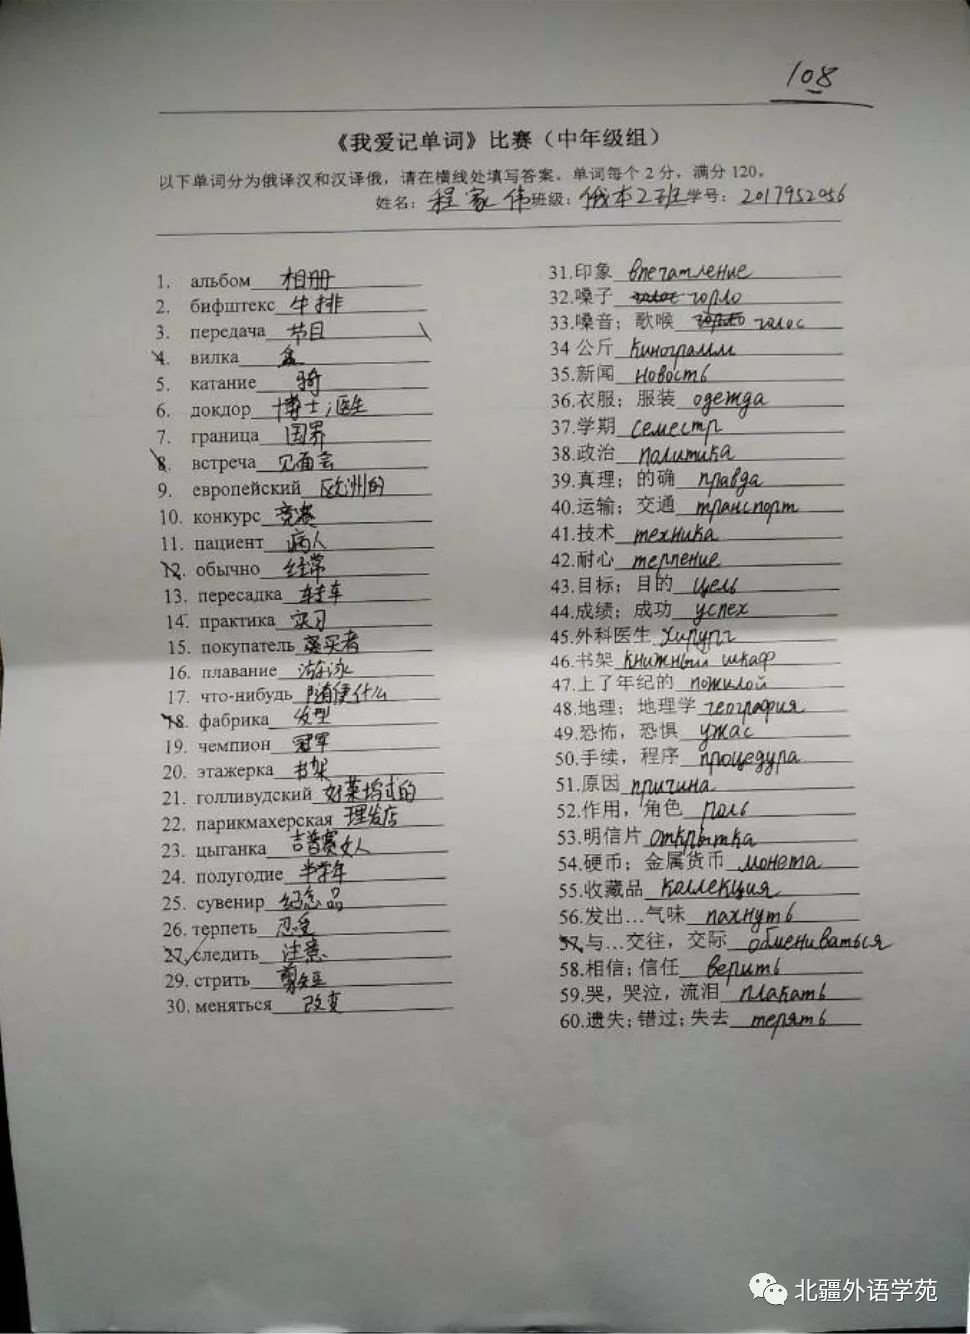 108
《我爱记单词》比赛（中年级组）
以下单词分为俄译汉和汉译俄，请在横线处填写答案。单词每个2分，满分120。
姓名：程家伟 班级：俄本2班 学号：2017952056
1. альбом 相册
2. бифштекс 牛排
3. передача 节目
4. вилка 盒
5. катание 骑
6. докдор 博士；医生
7. граница 国界
8. встреча 见面会
9. европейский 欧洲的
10. конкурс 竞赛
11. пациент 病人
12. обычно 经常
13. пересадка 转车
14. практика 实习
15. покупатель 买者
16. плавание 游泳
17. что-нибудь 随便什么
18. фабрика 发型
19. чемпион 冠军
20. этажерка 书架
21. голливудский 好莱坞式的
22. парикмахерская 理发店
23. цыганка 吉普赛女人
24. полугодие 半学年
25. сувенир 纪念品
26. терпеть 忍受
27. следить 注意
29. стрить 剪短
30. меняться 改变
31.印象 впечатление
32.嗓子 горло
33.嗓音；歌喉 голос
34 公斤 кинограмм
35.新闻 новость
36.衣服；服装 одежда
37.学期 семестр
38.政治 политика
39.真理；的确 правда
40.运输；交通 транспорт
41.技术 техника
42.耐心 терпение
43.目标；目的 цель
44.成绩；成功 успех
45.外科医生 хирург
46.书架 книжный шкаф
47.上了年纪的 пожилой
48.地理；地理学 география
49.恐怖，恐惧 ужас
50.手续，程序 процедура
51.原因 причина
52.作用，角色 роль
53.明信片 открытка
54.硬币；金属货币 монета
55.收藏品 коллекция
56.发出…气味 пахнуть
57.与…交往，交际 обмениваться
58.相信；信任 верить
59.哭，哭泣，流泪 плакать
60.遗失；错过；失去 терять
北疆外语学苑